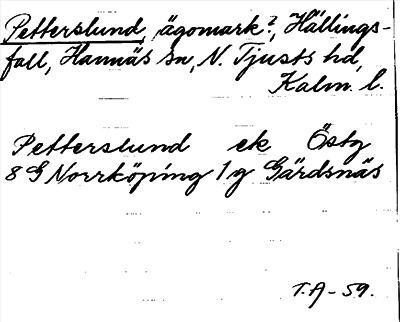 Petterslund, ägomark?, Hällings-
fall, Hannäs sn, N. Tjusts hd,
Kalm. l.
Petterslund ek Östg
8 G Norrköping 1 g Gärdsnäs
T.A - 59.